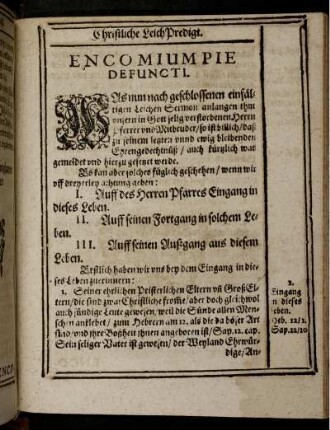 Christliche LeichPredigt.
ENCOMIUM PIE
DEFUNCTI.
WAs nun nach geschlossenen einfäl-
tigen Leichen Sermon anlangen thut
unsern in Gott selig verstorbenen Herrn
Pfarrer vnd Mitbruder / so ist billich / daß
zu seinem letzten vnnd ewig bleibenden
Ehrengedechtnüß / auch kürtzlich was
gemeldet vnd hierzu gesetzet werde.
Es kan aber solches füglich geschehen / wenn wir
vff dreyerley achtung geben:
I. Auff des Herren Pfarres Eingang in
dieses Leben.
II. Auff seinen Fortgang in solchem Le-
ben.
III. Auff seinen Außgang aus diesem
Leben.
Erstlich haben wir vns bey dem Eingang in die-
ses Leben zuerinnern:
1. Seiner ehrlichen Priesterlichen Eltern vñ Groß El-
tern / die sind zwar Christliche fromme / aber doch gleichwol
auch sündige Leute gewesen, weil die Sünde allen Men-
schen anklebet / zum Hebreern am 12. als die da böser Art
sind / vnd ihre Boßheit ihnen angeboren ist / Sap. 12. cap.
Sein seliger Vater ist gewesen / der Weyland Ehrwür-
dige / An-
1.
Eingang
in dieses
Leben.
Heb. 12/1.
Sap. 12/10